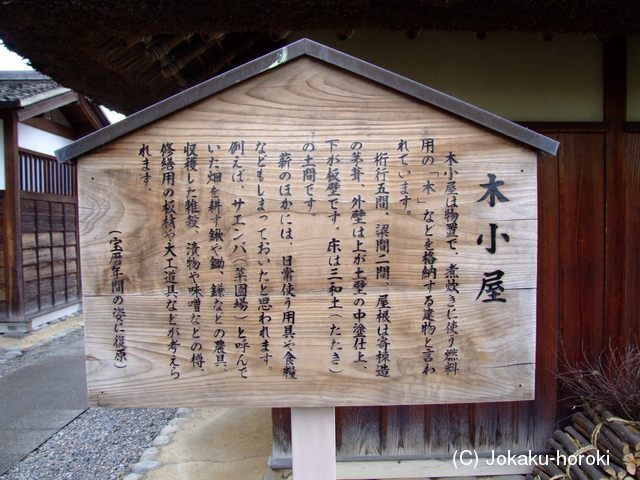 木小屋
木小屋は物置で、煮炊きに使う燃料
用の「木」などを格納する建物と言わ
れています。
桁行五間、梁間二間、屋根は寄棟造
の茅葺、外壁は上が土壁の中塗仕上、
下が板壁です。床は三和土（たたき）
の土間です。
薪のほかには、日常使う用具や食糧
などもしまっておいたと思われます。
例えば、サエンバ（菜園場）と呼んで
いた畑を耕す鍬や鋤、鎌などの農具、
収穫した雑穀、漬物や味噌などの樽、
修繕用の板材や大工道具などが考えら
れます。
（宝暦年間の姿に復原）
(C) Jokaku-horoki